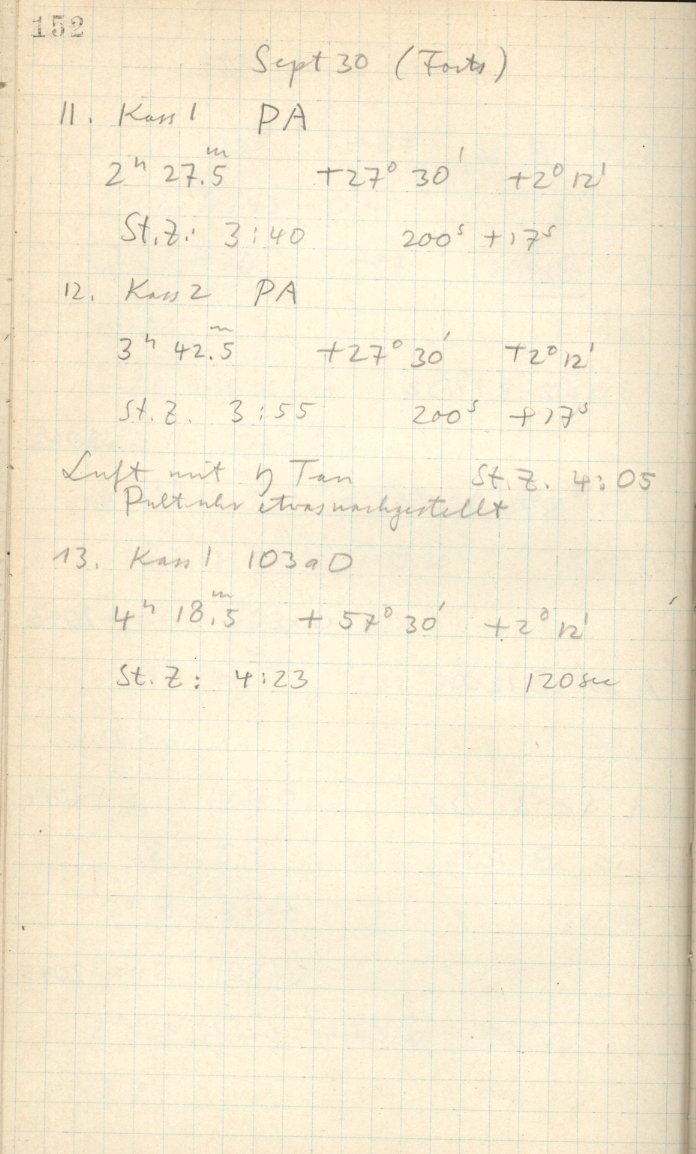 152
Sept 30 (Forts)
11. Kass 1 PA
2ʰ 27.5ᵐ +27° 30' +2° 12'
St.Z: 3:40 200ˢ +17ˢ
12. Kass 2 PA
3ʰ 42.5ᵐ +27° 30' +2° 12'
St.Z. 3:55 200ˢ +17ˢ
Luft mit η Tau St.Z. 4:05
Pultuhr etwas nachgestellt
13. Kass 1 103aO
4ʰ 18.5ᵐ +57° 30' +2° 12'
St.Z: 4:23 120 sec